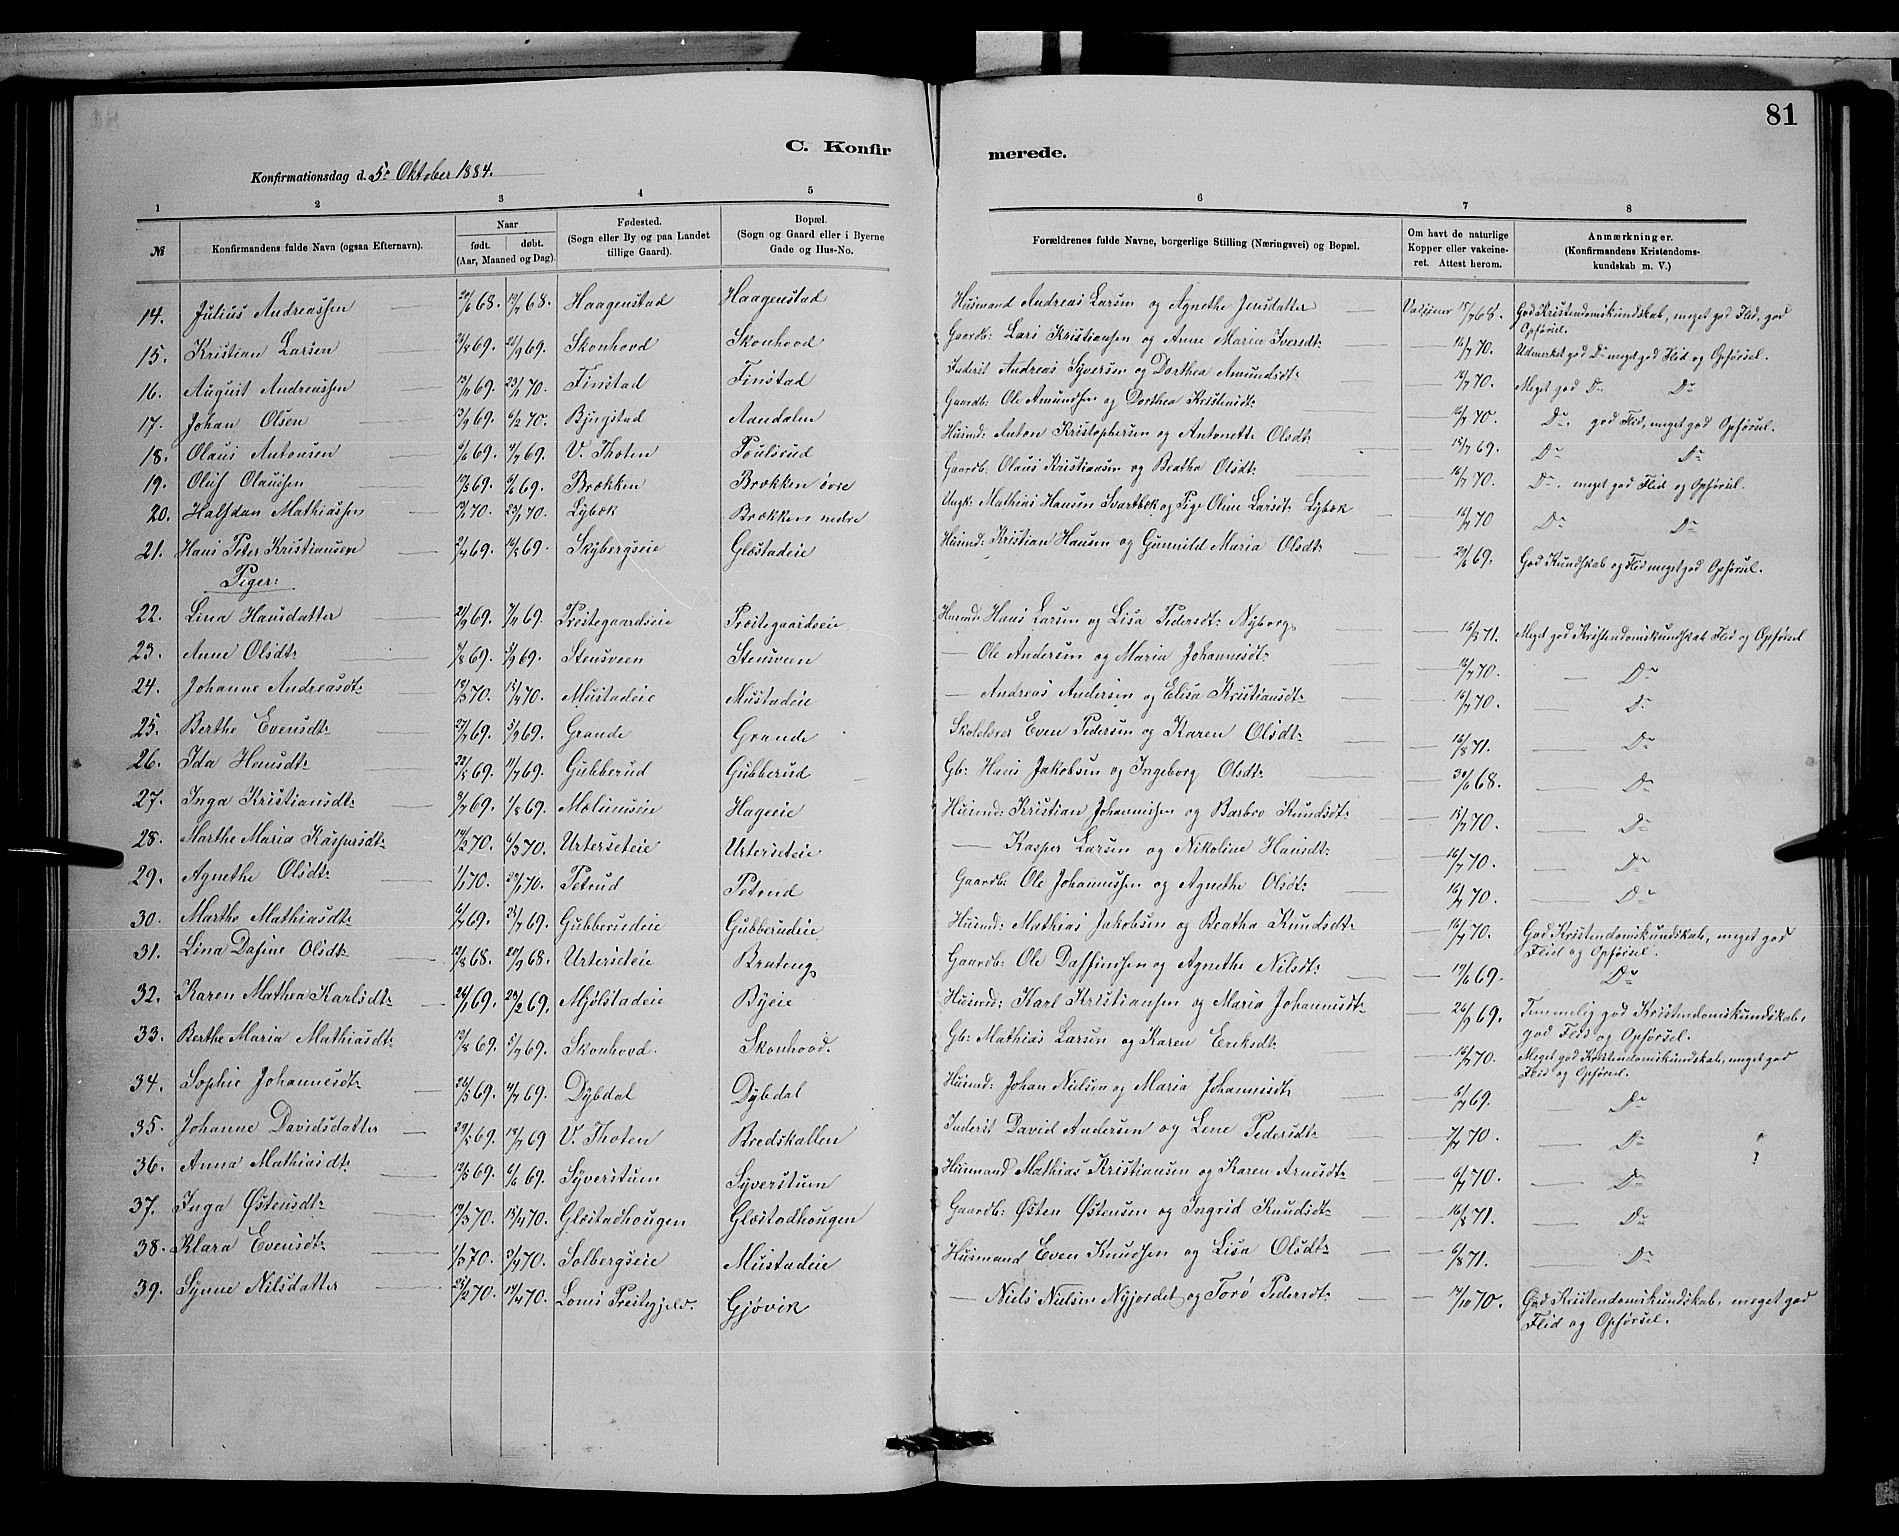 81
C. Konfirmerede.
Konfirmationsdag d. 5te Oktober 1884.
1 2 3 4 5 6 7 8
№ Konfirmandens fulde Navn (ogsaa Efternavn). Naar født. døbt. (Aar, Maaned og Dag). Fødested. (Sogn eller By og paa Landet tillige Gaard). Bopæl. (Sogn og Gaard eller i Byerne Gade og Hus-No. Forældrenes fulde Navne, borgerlige Stilling (Næringsvei) og Bopæl. Om havt de naturlige Kopper eller vakcineret. Attest herom. Anmærkninger. (Konfirmandens Kristendomskundskab m. V.)
14. Julius Andreassen 20/6 68. 19/7 68. Haagenstad Haagenstad Husmand Andreas Larsen og Agnethe Jensdatter 15/7 68. God Kristendomskundskab, meget god Flid, god Opførsel.
15. Kristian Larsen 21/8 69. 26/9 69. Skonhovd Skonhovd Gaardb: Lars Kristiansen og Anne Maria Iversdt: 16/7 70. Udmerket god Do meget god Flid og Opførsel.
16. August Andreassen 13/11 69. 23/1 70. Finstad Finstad Inderst Andreas Syversen og Dorthea Amundsdt: 16/7 70. Meget god Do Do
17. Johan Olsen 69. 6/2 70. Bjugstad Aandalen Gaardb: Ole Amundsen og Dorthea Kristensdt: 16/7 70. Do. god Flid, meget god Opførsel.
18. Olaus Antonsen 6/6 69. 4/7 69. V. Thoten Poulsrud Husmd: Anton Kristophersen og Antonette Olsdt: 15/7 69. Do Do
19. Oluf Olaussen 69. 6/6 69. Brækken Brækken øvre Gaardb. Olaus Kristiansen og Beatha Olsdt: 16/7 70. Do. meget god Flid og Opførsel.
20. Halfdan Mathiassen 70. 23/1 70. Lybæk Brækken nedre Ungk: Mathias Hansen Svartbæk og Pige Oline Larsdt: Lybæk 16/7 70 Do Do
21. Hans Peter Kristiansen 2/4 69. 16/5 69. Skybergseie Glæstadeie Husmd: Kristian Hansen og Gunnild Maria Olsdt: 29/6 69. God Kundskab og Flid meget god Opførsel.
Piger:
22. Lina Hansdatter 69. 7/11 69. Prestegaardseie Præstegaardseie Husmd: Hans Larsen og Lisa Pedersdt: Nyborg 16/8 71. Meget god Kristendomskundskab Flid og Opførsel
23. Anne Olsdt: 7/8 69. 5/9 69. Stensveen Stensveen — Ole Andersen og Maria Johannesdt: 16/7 70. Do
24. Johanne Andreasdt: 70. 18/4 70. Mustadeie Mustadeie — Andreas Andersen og Elisa Kristiansdt: 16/7 70. Do
25. Berthe Evensdt: 27/7 69. 5/9 69. Grande Grande Skolelærer Even Pedersen og Karen Olsdt: 16/8 71. Do
26. Ida Hansdt: 22/5 69. 11/7 69. Gubberud Gubberud Gb: Hans Jakobsen og Ingeborg Olsdt: 30/6 68. Do
27. Inga Kristiansdt: 3/7 69. 1/8 69. Mælumseie Hageeie Husmd: Kristian Johannesen og Barbro Knudsdt: 15/7 70. Do
28. Marthe Maria Kaspersdt: 14/2 70. 6/3 70. Urterseteie Urterseteie — Kasper Larsen og Nikoline Hansdt: 16/7 70. Do
29. Agnethe Olsdt: 1/1 70. 29/1 70. Petrud Petrud Gaardb: Ole Johannessen og Agnethe Olsdt: 16/7 70. Do
30. Marthe Mathiasdt: 69. 25/7 69. Gubberudeie Gubberudeie Husmd: Mathias Jakobsen og Beatha Knudsdt: 16/7 70. God Kristendomskundskab, meget god Flid og Opførsel.
31. Lina Dafine Olsdt: 13/8 68. 20/9 68. Urterseteie Brateng Gaardb: Ole Daffinssen og Agnethe Nilsdt: 19/6 69. Do
32. Karen Mathea Karlsdt: 26/1 69. 28/2 69. Mjølstadeie Byeie Husmd: Karl Kristiansen og Maria Johannesdt: 26/9 69. Temmelig god Kristendomskundskab, god Flid og Opførsel.
33. Berthe Maria Mathiasdt: 13/8 69. 5/9 69. Skonhovd. Skonhovd. Gb: Mathias Larsen og Karen Eriksdt: 16/7 70. Meget god Kristendomskundskab, meget god Flid og Opførsel.
34. Sophie Johannesdt: 26/5 69. 4/7 69. Dybdal Dybdal Husmd: Johan Nielsen og Maria Johannesdt: 6/7 69. Do
35. Johanne Davidsdatter 29/5 69. 18/7 69 V. Thoten Bredskallen Inderst David Andersen og Lene Pedersdt: 7/7 70. Do
36. Anna Mathiasdt: 12/5 69. 6/6 69. Syverstum Syverstum Husmand Mathias Kristiansen og Karen Arnesdt: 6/7 70. Do
37. Inga Østensdt: 19/3 70. 18/4 70. Glæstadhougen Glæstadhougen Gaardb: Østen Østensen og Ingrid Knudsdt: 16/8 71. Do
38. Klara Evensdt: 1/3 70. 3/4 70. Solbergseie Mustadeie Husmand Even Knudsen og Lisa Olsdt: 6/8 71. Do
39. Synne Nilsdatter 25/2 70. 18/4 70. Loms Prestegjeld. Gjøvik — Niels Nielsen Nyjordet og Torø Pedersdt: 7/10 70. God Kristendomskundskab, meget god Flid og Opførsel.